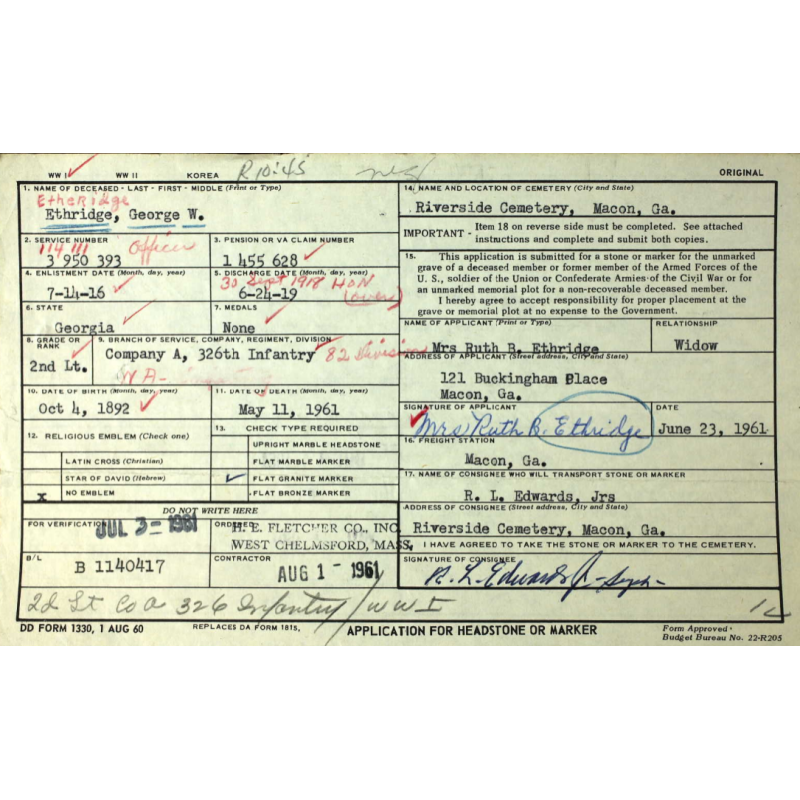 WW I WW II KOREA R 10:45 ORIGINAL
1. NAME OF DECEASED - LAST - FIRST - MIDDLE (Print or Type)
EtheRidge
Ethridge, George W.
2. SERVICE NUMBER
114 111 Officer
3 950 393
3. PENSION OR VA CLAIM NUMBER
1 455 628
4. ENLISTMENT DATE (Month, day, year)
7-14-16
5. DISCHARGE DATE (Month, day, year)
30 Sept 1918 HON
6-24-19 (over)
6. STATE
Georgia
7. MEDALS
None
8. GRADE OR RANK
2nd Lt.
9. BRANCH OF SERVICE, COMPANY, REGIMENT, DIVISION
Company A, 326th Infantry 82 Division
10. DATE OF BIRTH (Month, day, year)
Oct 4, 1892
11. DATE OF DEATH (Month, day, year)
May 11, 1961
12. RELIGIOUS EMBLEM (Check one)
LATIN CROSS (Christian)
STAR OF DAVID (Hebrew)
x NO EMBLEM
13. CHECK TYPE REQUIRED
UPRIGHT MARBLE HEADSTONE
FLAT MARBLE MARKER
FLAT GRANITE MARKER
FLAT BRONZE MARKER
DO NOT WRITE HERE
FOR VERIFICATION
JUL 3 - 1961
ORDERED
H. E. FLETCHER CO., INC.
WEST CHELMSFORD, MASS.
B/L
B 1140417
CONTRACTOR
AUG 1 - 1961
14. NAME AND LOCATION OF CEMETERY (City and State)
Riverside Cemetery, Macon, Ga.
IMPORTANT - Item 18 on reverse side must be completed. See attached
instructions and complete and submit both copies.
15. This application is submitted for a stone or marker for the unmarked
grave of a deceased member or former member of the Armed Forces of the
U. S., soldier of the Union or Confederate Armies of the Civil War or for
an unmarked memorial plot for a non-recoverable deceased member.
I hereby agree to accept responsibility for proper placement at the
grave or memorial plot at no expense to the Government.
NAME OF APPLICANT (Print or Type)
Mrs Ruth B. Ethridge
RELATIONSHIP
Widow
ADDRESS OF APPLICANT (Street address, City and State)
121 Buckingham Place
Macon, Ga.
SIGNATURE OF APPLICANT
Mrs Ruth B. Ethridge
DATE
June 23, 1961
16. FREIGHT STATION
Macon, Ga.
17. NAME OF CONSIGNEE WHO WILL TRANSPORT STONE OR MARKER
R. L. Edwards, Jrs
ADDRESS OF CONSIGNEE (Street address, City and State)
Riverside Cemetery, Macon, Ga.
I HAVE AGREED TO TAKE THE STONE OR MARKER TO THE CEMETERY.
SIGNATURE OF CONSIGNEE
R. L. Edwards Jr
2d Lt Co A 326 Infantry / WW I
DD FORM 1330, 1 AUG 60 REPLACES DA FORM 1815, APPLICATION FOR HEADSTONE OR MARKER
Form Approved
Budget Bureau No. 22-R205